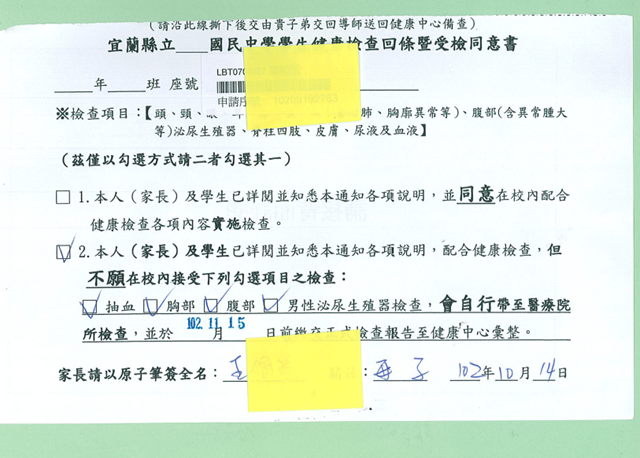 (請沿此線撕下後交由貴子弟交回導師送回健康中心備查)
宜蘭縣立____國民中學學生健康檢查回條暨受檢同意書
____年____班 座號
LBT070
申請序
※檢查項目：【頭、頸、眼、 肺、胸廓異常等)、腹部(含異常腫大
等)泌尿生殖器、脊柱四肢、皮膚、尿液及血液】
(茲僅以勾選方式請二者勾選其一)
□ 1.本人(家長)及學生已詳閱並知悉本通知各項說明，並同意在校內配合
健康檢查各項內容實施檢查。
☑ 2.本人(家長)及學生已詳閱並知悉本通知各項說明，配合健康檢查，但
不願在校內接受下列勾選項目之檢查：
☑ 抽血 ☑ 胸部 ☑ 腹部 ☑ 男性泌尿生殖器檢查，會自行帶至醫療院
所檢查，並於 月 日前繳交正式檢查報告至健康中心彙整。
102.11.15
家長請以原子筆簽全名： ：母子 102年10月14日